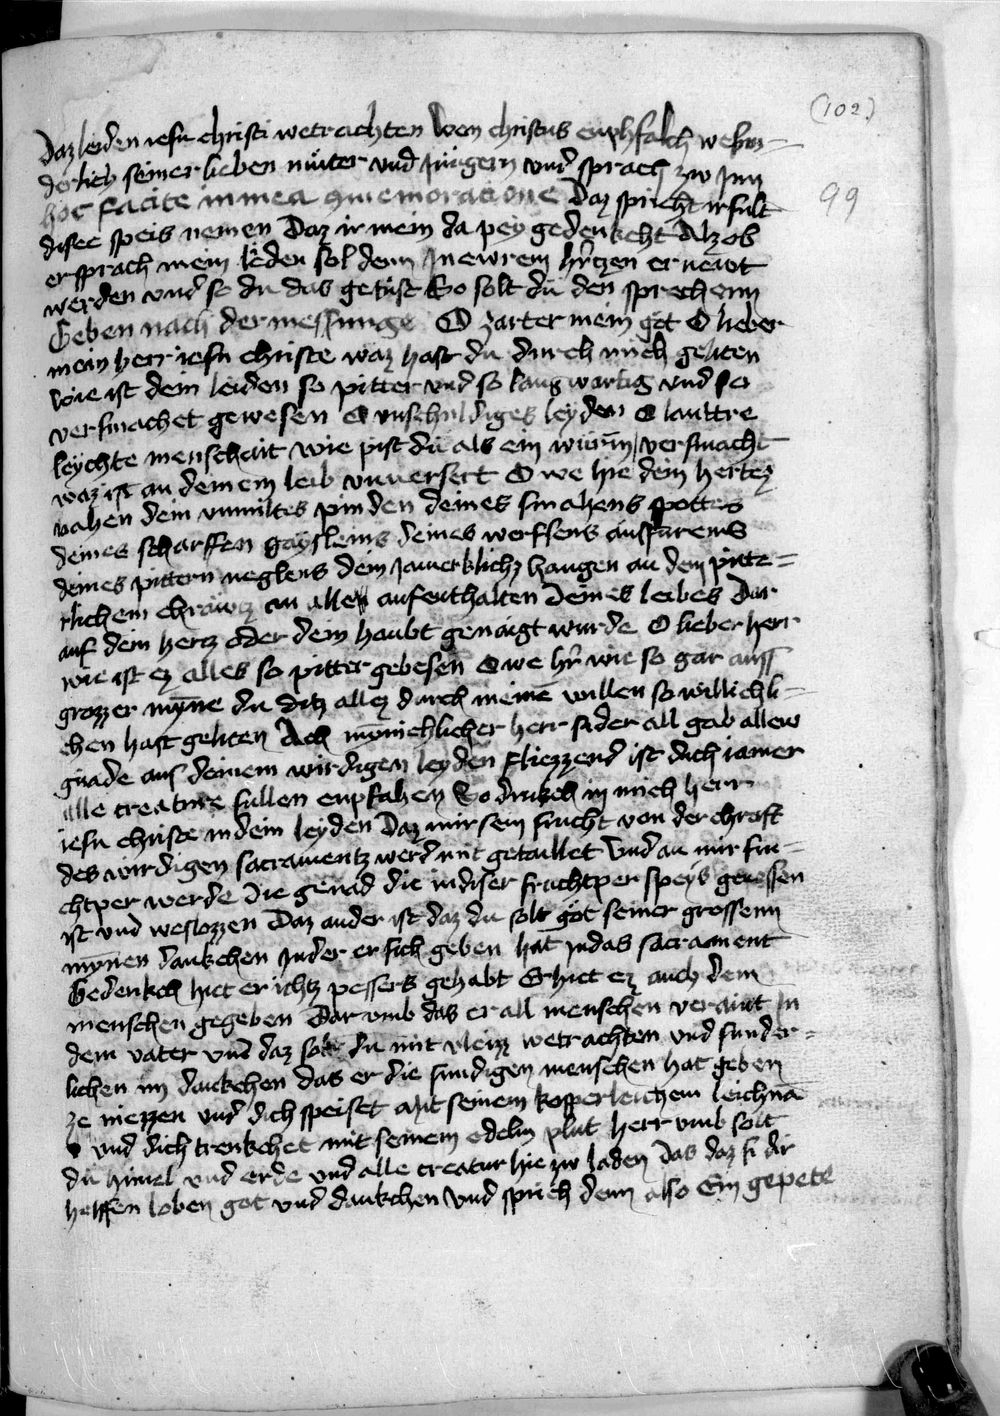 (102)
99
Daz leiden iesu christi wetrachten Wen christus enphfalch wesun=
derlich seiner lieben muter vnd Jungern vnd sprach zw Jnn
hoc facite in mea comemoratione Daz spricht ir sult
disee speis nemen Daz ir mein da pey gedenkcht Alz ob
er sprach mein leiden sol denn Jn ewrem hertzen ernewt
werden vnd so du das getust So solt du den sprechenn
Geben nach der messunge O zarter mein got O lieber
mein herr iesu christe waz hast du durch mich geliten
wie ist dein leiden so pitter vnd so langwartig vnd so
versmachet gewesen O vnschuldiges leyden O lauttre
leychte menschait wie pist du als ein wurm versmacht
waz ist an deinem leib vnuersert O we hie dein hertez
vahen dein vnmiltes pinden deines smahens spottes
deines scharffen gayslens deines werffens ausfurens
deines pittern neglens dein Jamerklichz hangen an dem pitte=
rlichem chrawtz an allen aufenthalten Deines leibes Dar
auf dein hertz oder dein haubt genaigt wurde O lieber herr
wie ist ez alles so pitter gebesen O we hr wie so gar auss
grozzer mynne du ditz allez durch meinē willen so willichli=
chen hast geliten Ach mynnichlicher herr sider all gab allew
gnade aus deinem wirdigen leyden fliezzend ist dich iamer
alle creature sullen enpfahen So drukch in mich herr
iesu christe in dein leyden Daz mir sein frucht von der chraft
des wirdigen sacramentz werd mit getaillet Vnd an mir fru=
chtper werde Die genad die in diser fruchtper speys genossen
ist vnd weslozzen Daz ander ist daz du solt got seiner grossenn
mynen dankchen Jn der er sich geben hat Jn das sacrament
Gedenkch hiet er ichtz pessers gehabt Er hiet ez auch dem
menschen gegeben Dar vmb das er all menschen veraint In
dem vater vnd daz solt du mit vleizz wetrachten vnd sunder=
lichen im dankchen das er die sundigen menschen hat geben
ze niezzen vnd dich speiset mit seinem kosperleichem leichnā
vnd dich trenkchet mit seinem edelm plut Herr vmb solt
du himel vnd erde vnd alle creatur hie zw laden Das daz si dir
helffen loben got vnd dankchen Vnd sprich denn also Ein gepete